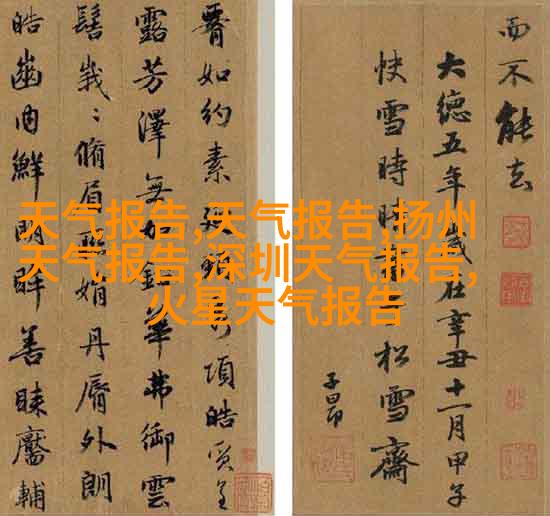 天气报告,天气报告,扬州
天气报告,深圳天气报告,
火星天气报告
腰如約素延頸秀項皓質呈
露芳澤無加鉛華弗御雲
髻峩〻脩眉聯娟丹脣外朗
皓齒內鮮明眸善睞靨輔
而不能去
大德五年歲在辛丑十一月甲子
快雪時晴書于松雪齋
子昂